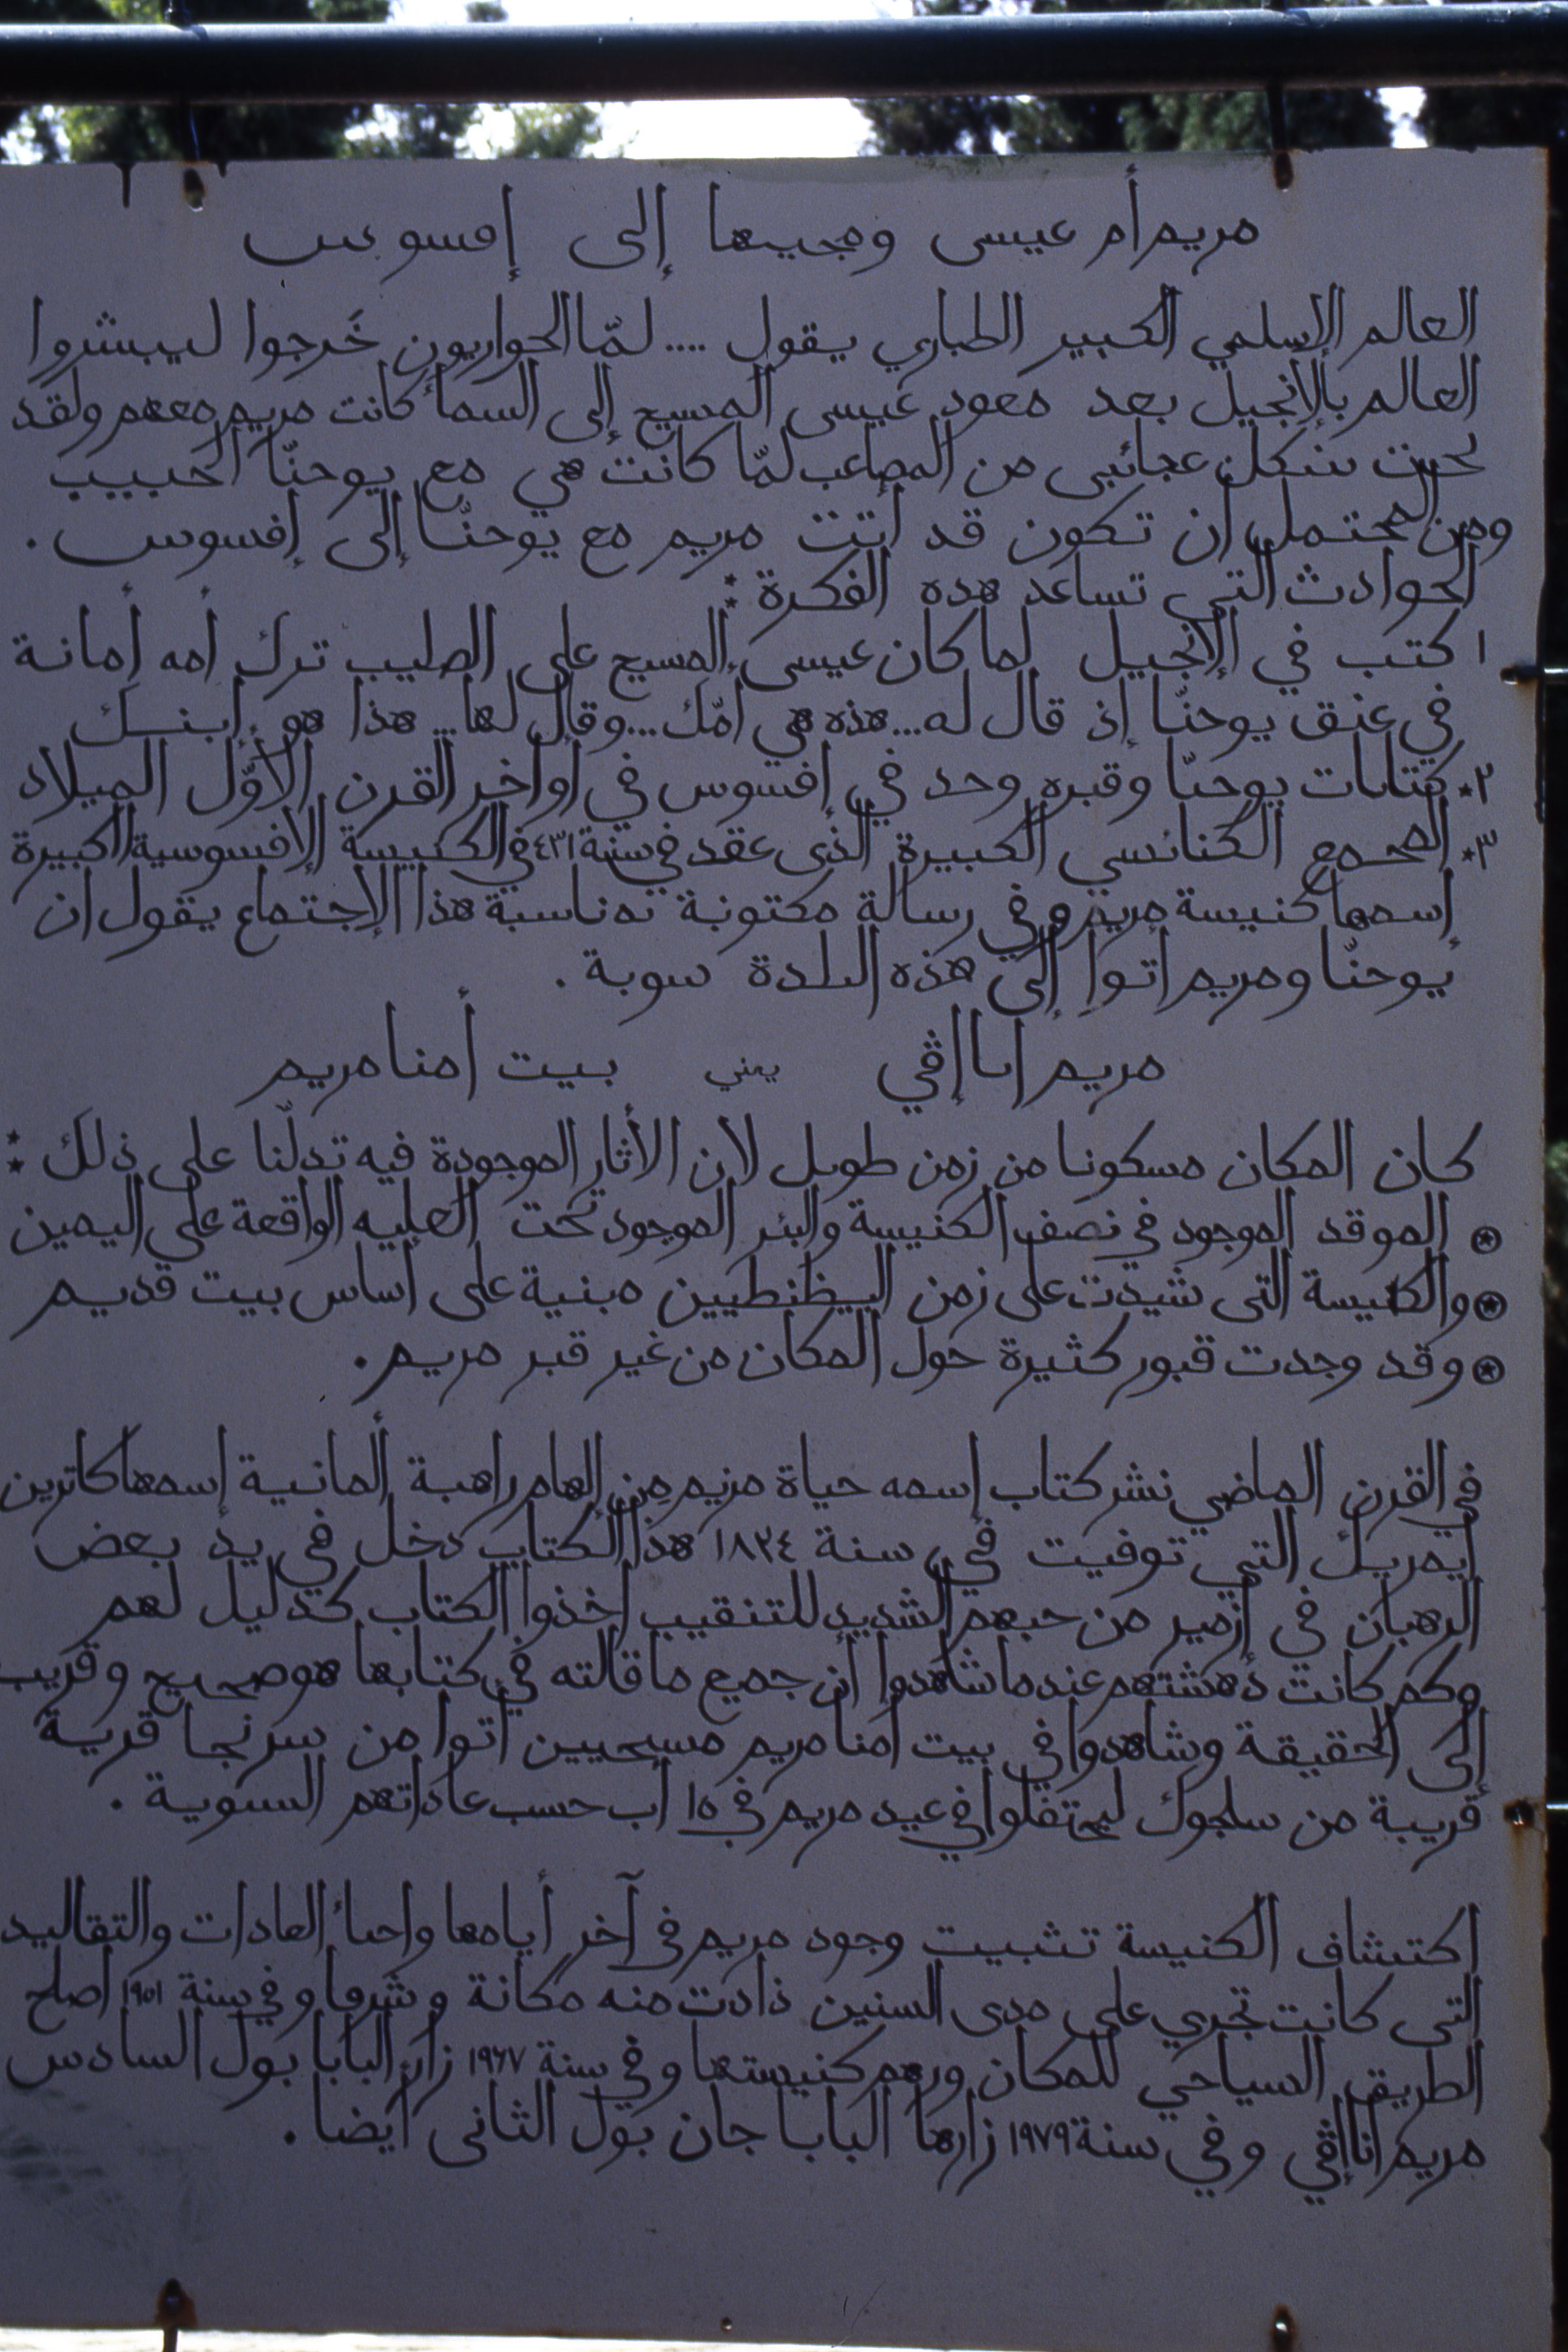 مريم أم عيسى ومجيها إلى إفسوس
العالم الإسلمي الكبير الطباري يقول .... لمّا الحواريون خَرجوا ليبشروا
العالم بالإنجيل بعد معود عيسى المسيح إلى السمأ كانت مريم معهم ولقد
بشكل عجائبى من المصاعب لمّا كانت هي مع يوحنّا الحبيب
ومن المحتمل أن تكون قد أتت مريم مع يوحنّا إلى إفسوس .
الحوادث التي تساعد هده الفكرة :
١ كتب في الإنجيل لما كان عيسى المسيح على الصليب ترك أمه أمانة
في عنق يوحنّا إذ قال له... هذه هي امّك... وقال لها.. هذا هو إبنك
٢* كتابات يوحنّا وقبره وحد في إفسوس في اواخر القرن الأوّل الميلاد
٣* المجمع الكنائسي الكبيرة الذى عقد في سنة ٤٣١ في الكنيسة الإفسوسية الكبيرة
إسمها كنيسة مريم وفي رسالة مكتوبة بمناسبة هذا الإجتماع يقول ان
يوحنّا ومريم اتوا إلى هذه البلدة سوية .
مريم انا إڤي يعني بيت أمنا مريم
كان المكان مسكونا من زمن طويل لان الأثار الموجودة فيه تدلّنا على ذلك :
⍟ الموقد الموجود في نصف الكنيسة والبئر الموجود تحت العليه الواقعة على اليمين
⍟ والكنيسة التى شيدت على زمن البيظنطيين مبنية على اساس بيت قديم
⍟ وقد وجدت قبور كثيرة حول المكان من غير قبر مريم .
في القرن الماضي نشر كتاب إسمه حياة مريم مِن إلهام راهبة ألمانية إسمها كاترين
ايمريك التي توفيت في سنة ١٨٢٤ هذا الكتاب دخل في يد بعض
الرهبان في إزمير من حبهم الشديد للتنقيب اخذوا الكتاب كدليل لهم
وكم كانت دهشتهم عندما شاهدوا أن جميع ما قالته في كتابها هو صحيح وقريب
إلى الحقيقة وشاهدوا في بيت امنا مريم مسيحيين اتوا من سرنجا قرية
قريبة من سلجوك ليحتفلوا في عيد مريم في ١٥ أب حسب عاداتهم السنوية .
اكتشاف الكنيسة تثبيت وجود مريم في آخر أيامها واحيأ العادات والتقاليد
التى كانت تجري على مدى السنين ذادت منه مكانة وشرفا وفي سنة ١٩٥١ اصلح
الطريق السياحي للمكان ورمم كنيستها وفي سنة ١٩٦٧ زار البابا بول السادس
مريم انا إڤي وفي سنة ١٩٧٩ زارها البابا جان بول الثانى ايضا .